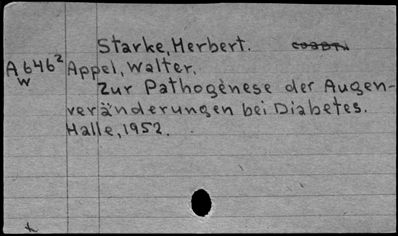 Starke, Herbert.
A646² Appel, Walter.
W Zur Pathogenese der Augen-
veränderungen bei Diabetes.
Halle, 1952.